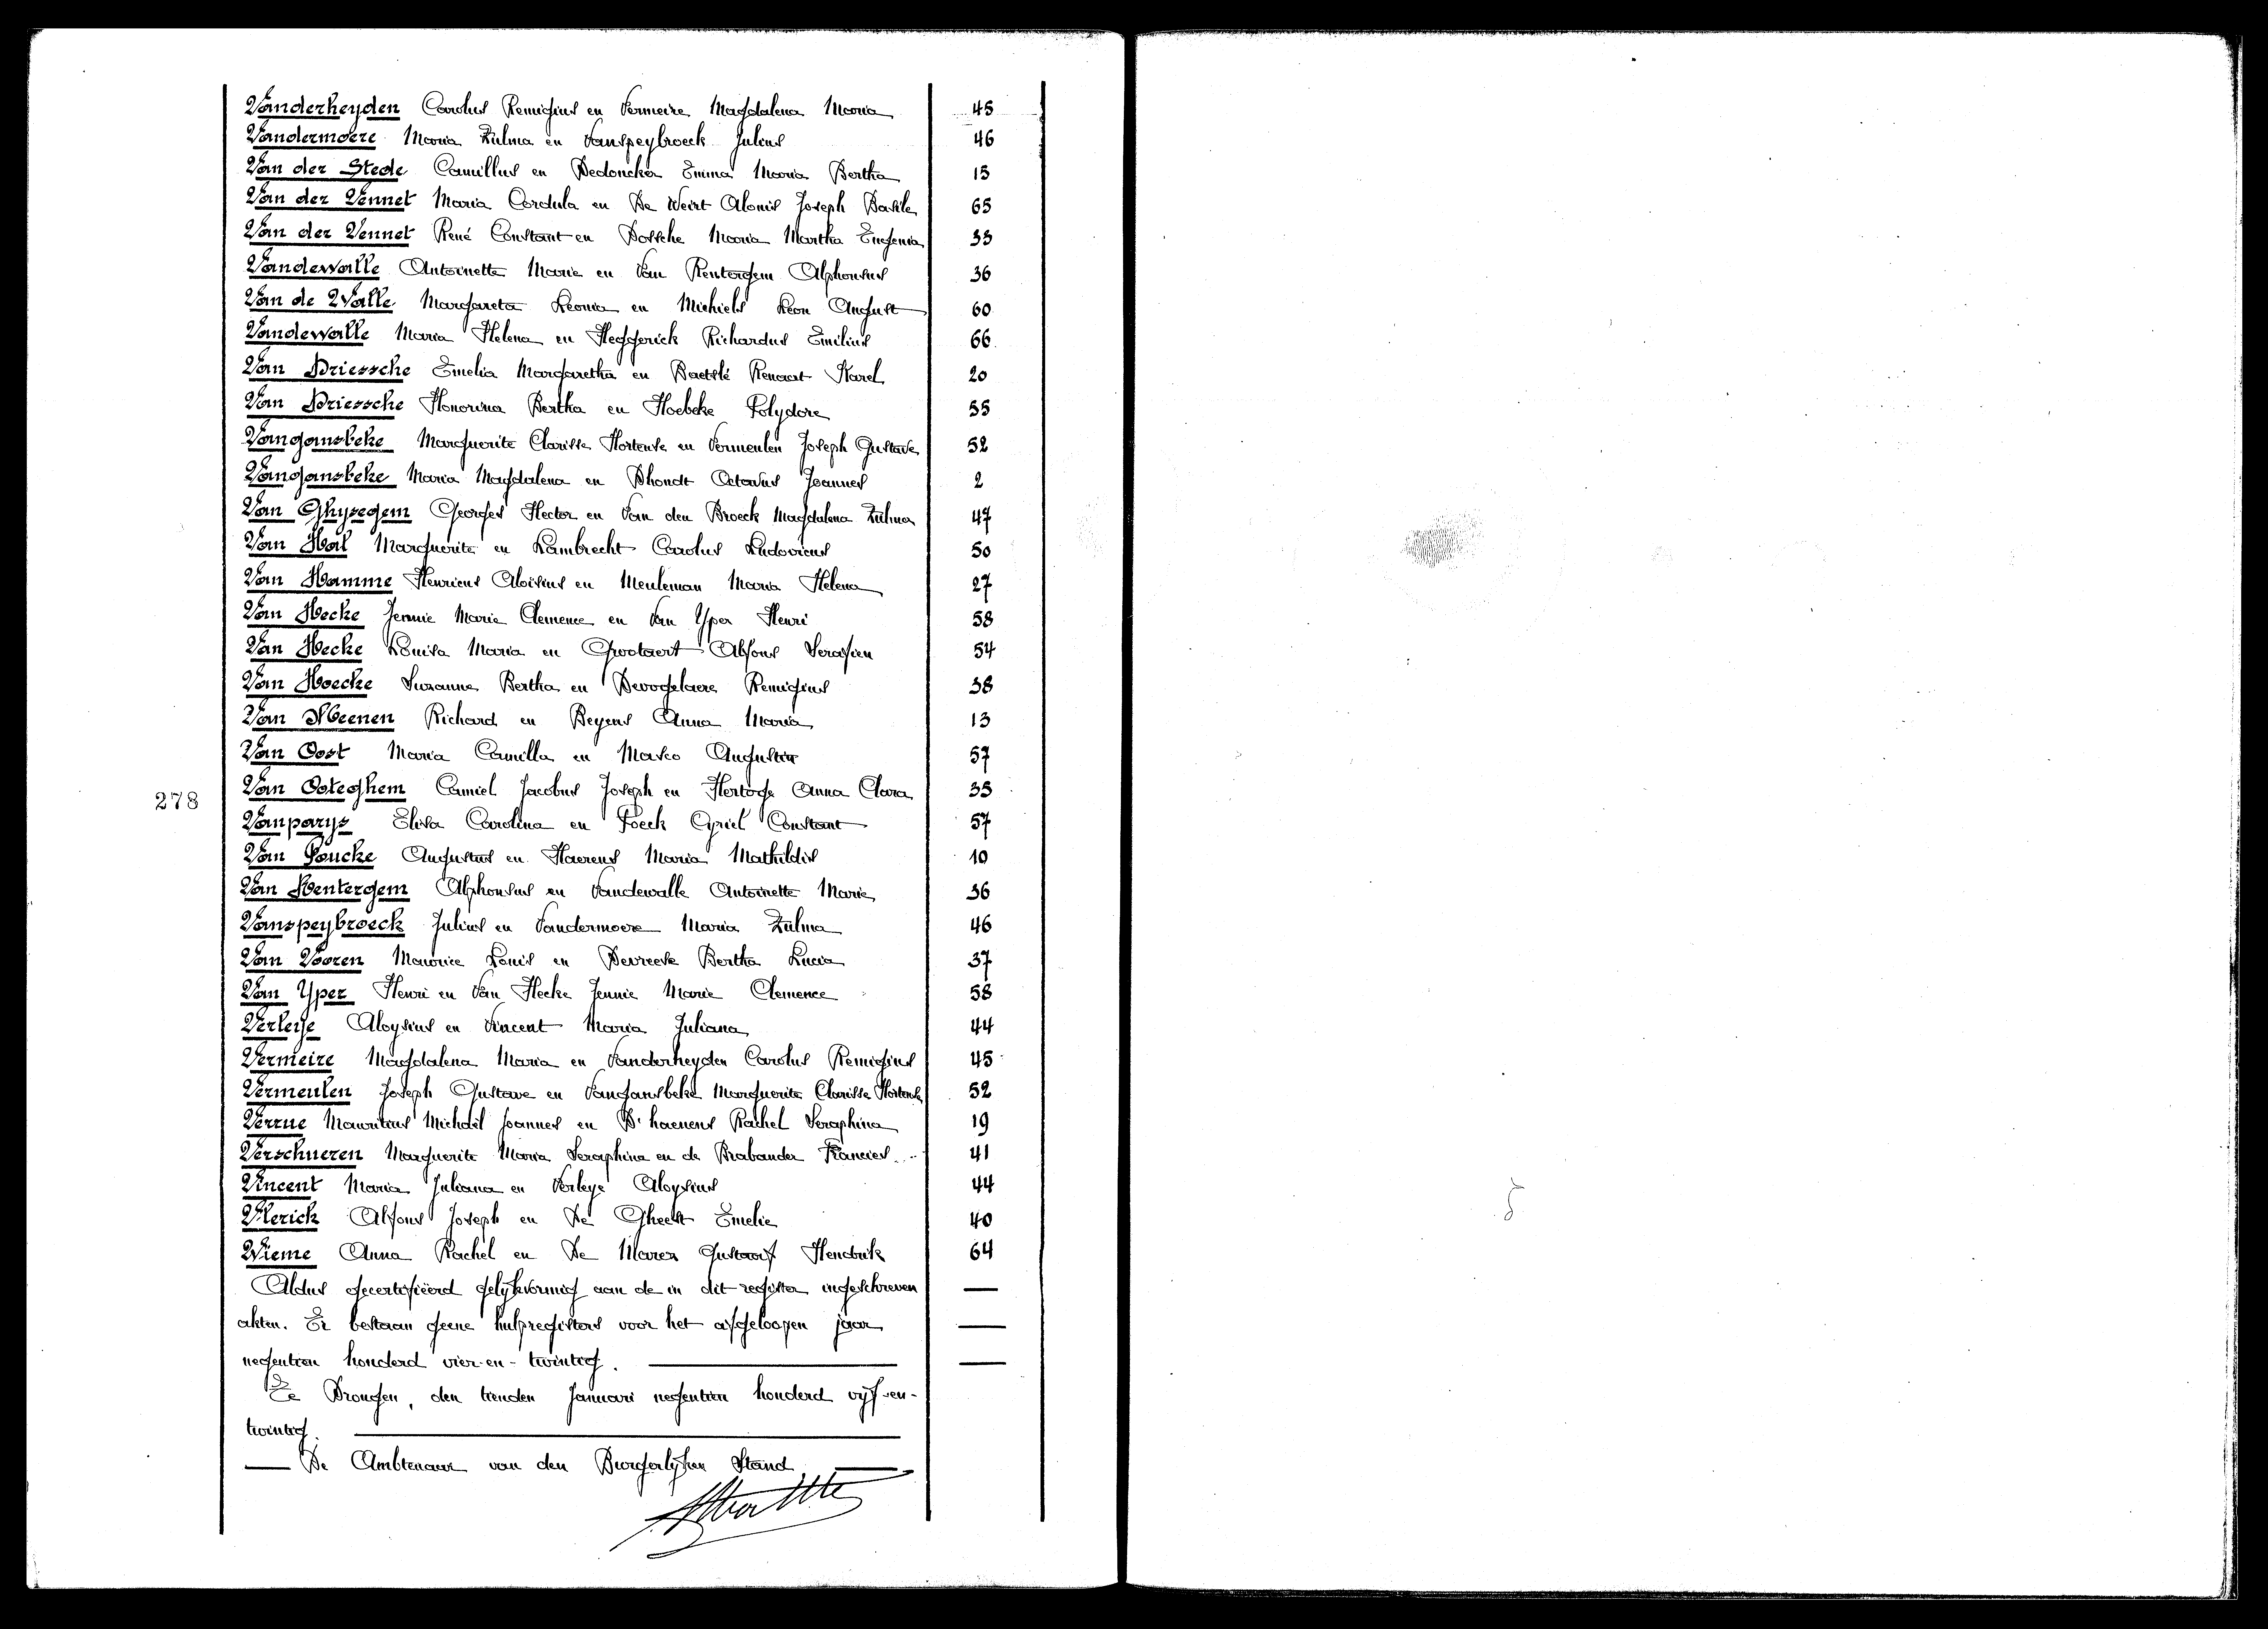 Vanderheyden Carolus Remigius en Vermeire Magdalena Maria 45
Vandermoere Maria Zulma en Vanspeybroeck Julius 46
Van der Stede Camillus en Dedoncker Emma Maria Bertha 15
Van der Vennet Maria Cordula en De Weirt Alonis Joseph Basile 65
Van der Vennet René Constant en Bossche Maria Martha Eugenia 33
Vandewalle Antoinette Marie en Van Rentergem Alphonsus 36
Van de Walle Margareta Leonia en Michiels Leon August 60
Vandewalle Maria Helena en Heggerick Richardus Emilius 66
Van Driessche Emelia Margaretha en Baetslé Renaert Karel 20
Van Driessche Honorina Bertha en Hoebeke Polydore 55
Vangansbeke Marguerite Clarisse Hortense en Vermeulen Joseph Gustave 52
Vangansbeke Maria Magdalena en Dhondt Octavus Joannes 2
Van Ghysegem Georges Hector en Van den Broeck Magdalena Zulma 47
Van Hal Marguerite en Lambrecht Carolus Ludovicus 50
Van Hamme Henricus Aloïsius en Meuleman Maria Helena 27
Van Hecke Jennie Marie Clemence en Van Yper Henri 58
Van Hecke Louisa Maria en Grootaert Alfons Serafien 54
Van Hoecke Suzanne Bertha en Devogelaere Remigius 38
Van Meenen Richard en Beyens Anna Maria 13
Van Oost Maria Camilla en Masco Augustin 57
Van Ooteghem Camiel Jacobus Joseph en Hertoge Anna Clara 35
278
Vanparys Elisa Carolina en Poeck Cyriel Constant 57
Van Poucke Augustus en Haerens Maria Mathildis 10
Van Rentergem Alphonsus en Vandewalle Antoinette Marie 36
Vanspeybroeck Julius en Vandermoere Maria Zulma 46
Van Vooren Maurice Louis en Devreese Bertha Lucia 37
Van Yper Henri en Van Hecke Jennie Marie Clemence 58
Verleye Aloysius en Vincent Maria Juliana 44
Vermeire Magdalena Maria en Vanderheyden Carolus Remigius 45
Vermeulen Joseph Gustave en Vangansbeke Marguerite Clarisse Hortense 52
Verrue Mauritius Michaël Joannes en D'haenens Rachel Seraphina 19
Verschueren Marguerite Maria Seraphina en de Brabander Francies 41
Vincent Maria Juliana en Verleye Aloysius 44
Vlerick Alfons Joseph en De Gheest Emelie 40
Wieme Anna Rachel en De Marez Gustaaf Hendrik 64
Aldus gecertifiëerd gelijkvormig aan de in dit register ingeschreven
akten. Er bestaan geene hulpregisters voor het afgeloopen jaar
negentien honderd vier-en-twintig.
Te Drongen, den tienden Januari negentien honderd vijf-en-
twintig.
De Ambtenaar van den Burgerlijken Stand